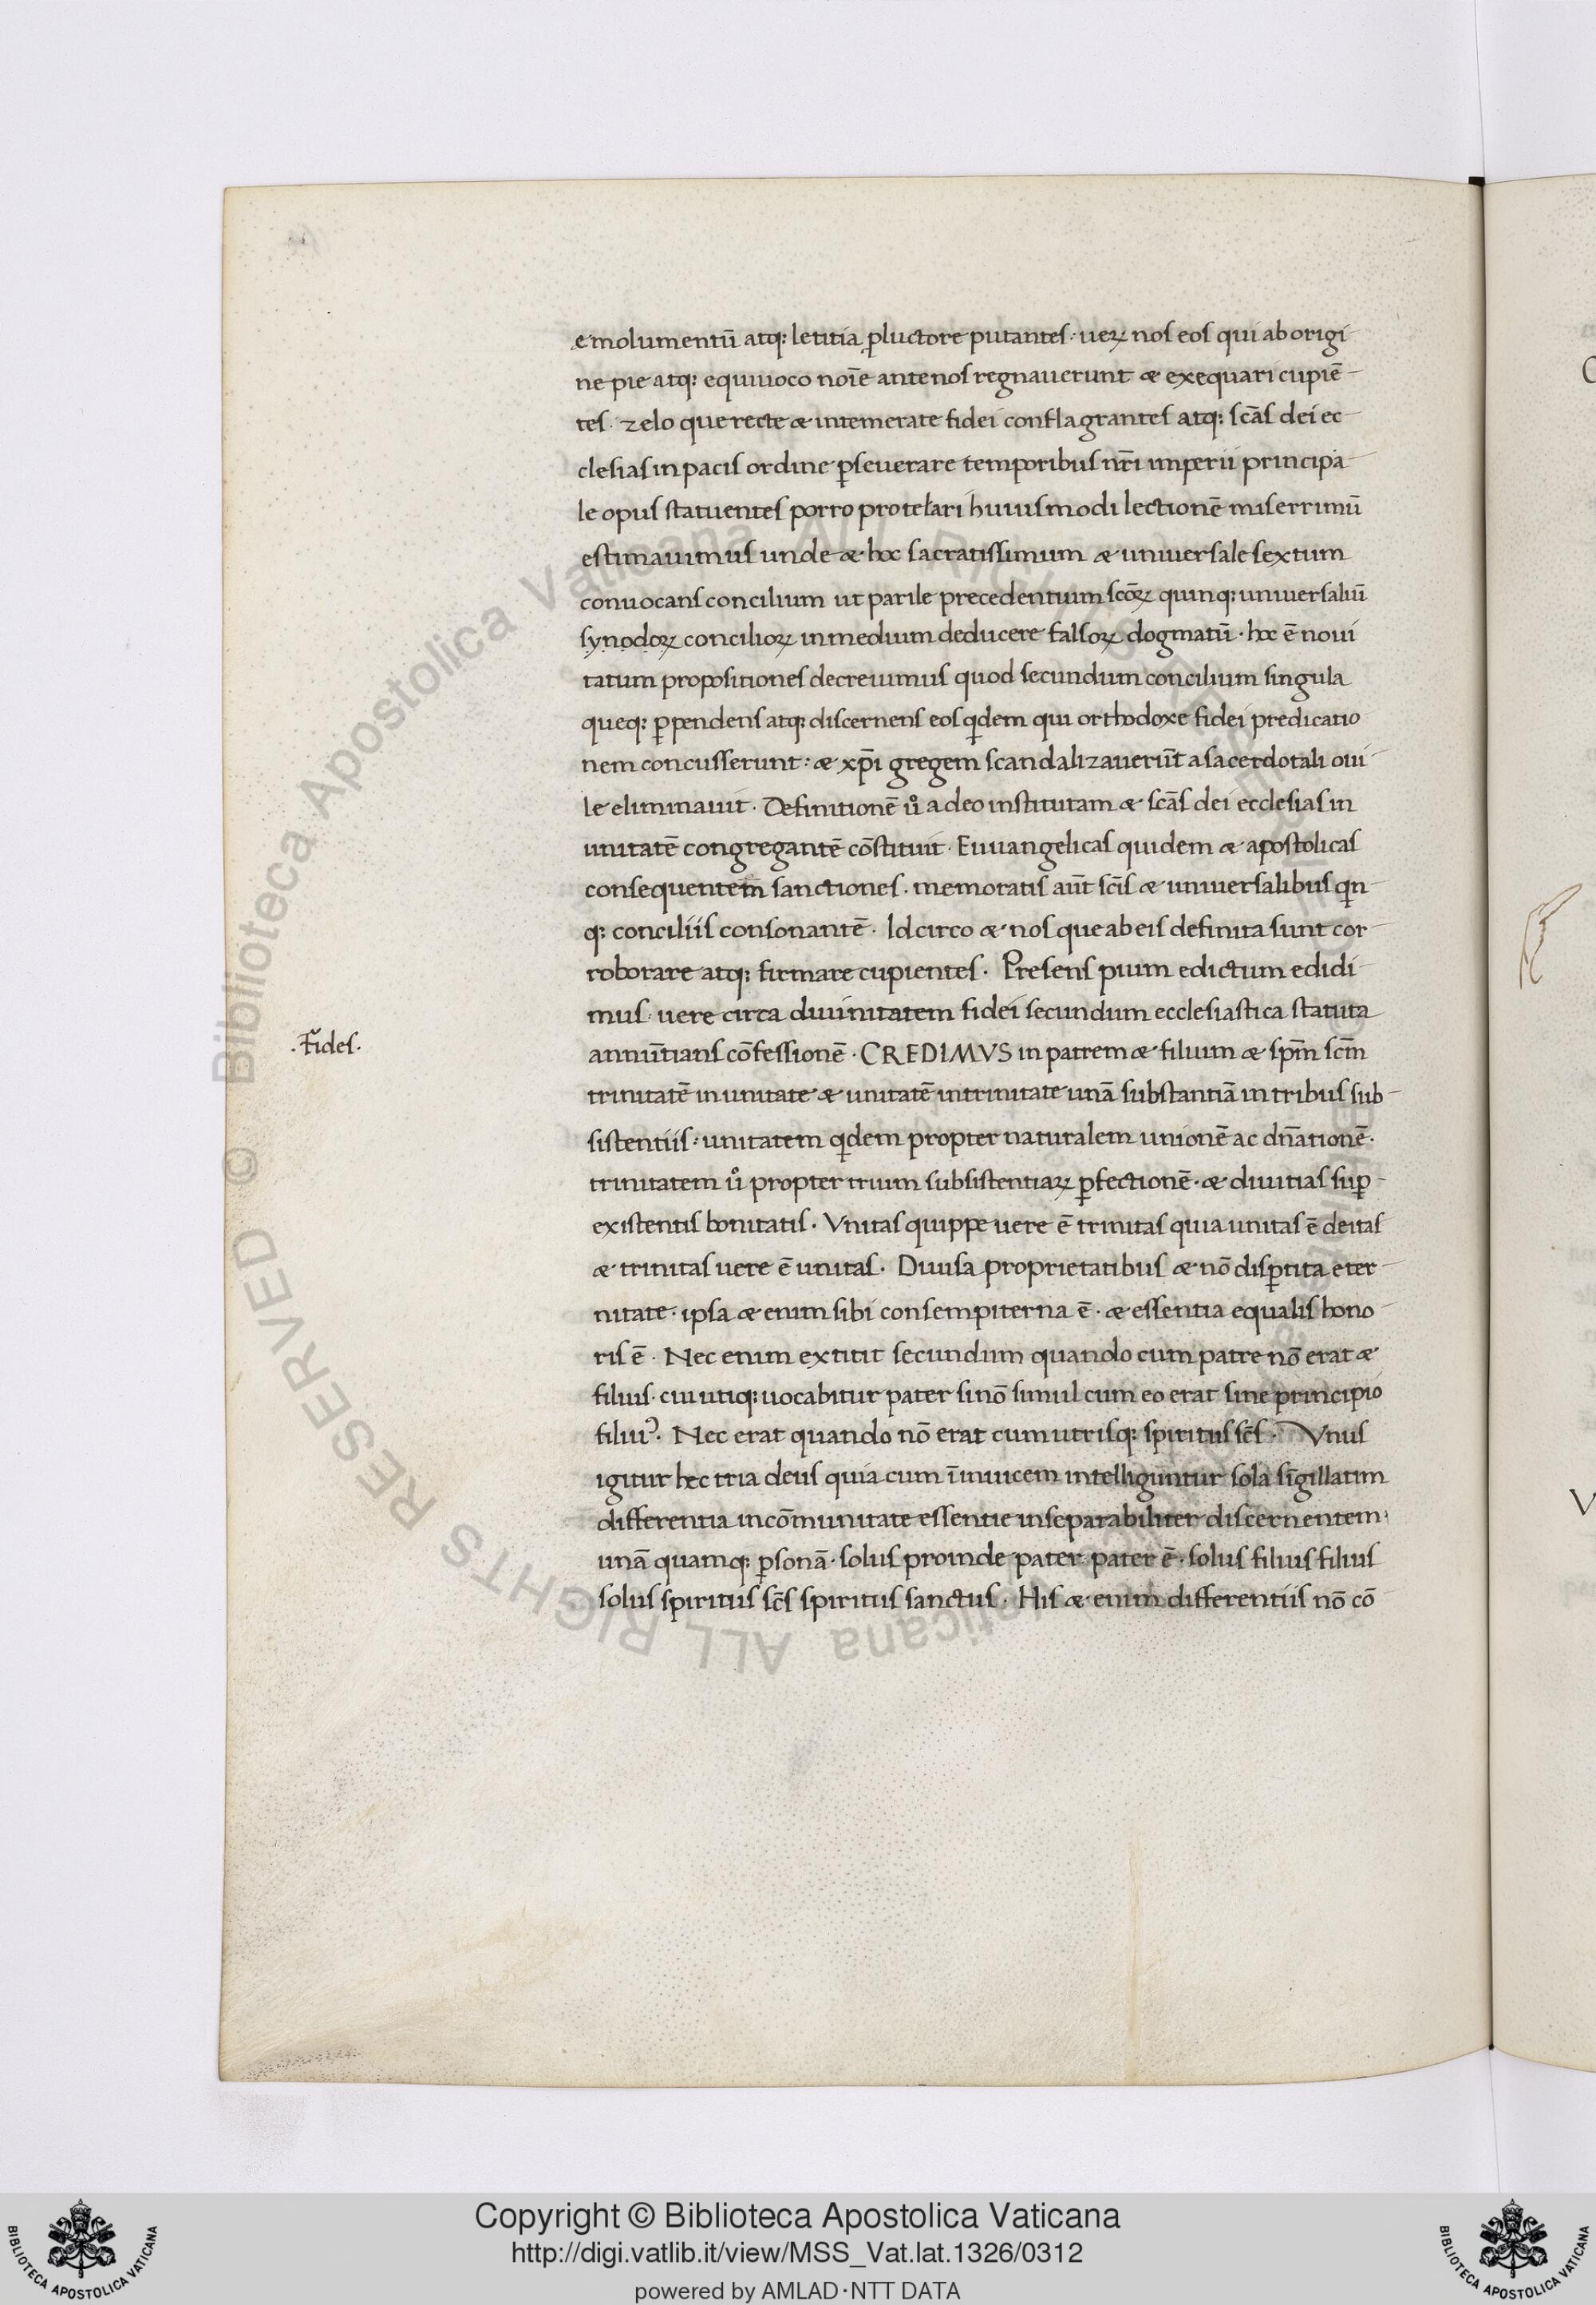 emolumentū atq; letitia ꝑluctore putantes · ueꝝ nos eos qui ab origi
ne pie atq; equiuoco noīe ante nos regnauerunt & exequari cupiē
tes · zelo que recte & intemerate fidei conflagrantes atq; scās dei ec
clesias in pacis ordine ꝑseuerare temporibus nr̄i imperii principa
le opus statuentes porro protelari huiusmodi lectionē miserrimū
estimauimus unde & hoc sacratissimum & uniuersale sextum
conuocans concilium ut parile precedentium scōꝝ quinq; uniuersaliū
synodoꝝ concilioꝝ in medium deducere falsoꝝ dogmatū · hoc ē noui
tatum propositiones decreuimus quod secundum concilium singula
queq; ꝑpendens atq; discernens eos qdem qui orthodoxe fidei predicatio
nem concusserunt : & xp̄i gregem scandalizauerūt a sacerdotali oui
le eliminauit · Definitionē uº a deo institutam & scās dei ecclesias in
unitatē congregantē cōstituit · Euuangelicas quidem & apostolicas
consequentem̄ sanctiones · memoratis aūt scīs & uniuersalibus qin
q; conciliis consonantē · Idcirco & nos que ab eis definita sunt cor
roborare atq; firmare cupientes · Presens pium edictum edidi
mus · uere circa diuinitatem fidei secundum ecclesiastica statuta
· Fides ·
annūtians cōfessionē · CREDIMVS in patrem & filium & sp̄m sc̄m
trinitatē in unitate & unitatē in trinitate unā substantiā in tribus sub
sistentiis : unitatem qdem propter naturalem unionē ac dn̄ationē ·
trinitatem uº propter trium subsistentiaꝝ ꝑfectionē · & diuitias suꝑ
existentis bonitatis · Vnitas quippe uere ē trinitas quia unitas ē deitas
& trinitas uere ē unitas · Diuisa proprietatibus & nō disꝑtita eter
nitate · ipsa & enim sibi consempiterna ē · & essentia equalis hono
ris ē · Nec enim extitit secundum quando cum patre nō erat &
filius · cui utiq; uocabitur pater si nō simul cum eo erat sine principio
filiuꝰ · Nec erat quando nō erat cum utrisq; spiritus sc̄s · Vnus
igitur hec tria deus quia cum īinuicem intelliguntur sola sīgillatim
differentia in cōmunitate essentie inseparabiliter discernentem
unā quamq; ꝑsonā · solus proinde pater pater ē · solus filius filius
solus spiritus sc̄s spiritus sanctus · His & enim differentiis nō cō
Copyright © Biblioteca Apostolica Vaticana
http://digi.vatlib.it/view/MSS_Vat.lat.1326/0312
powered by AMLAD·NTT DATA